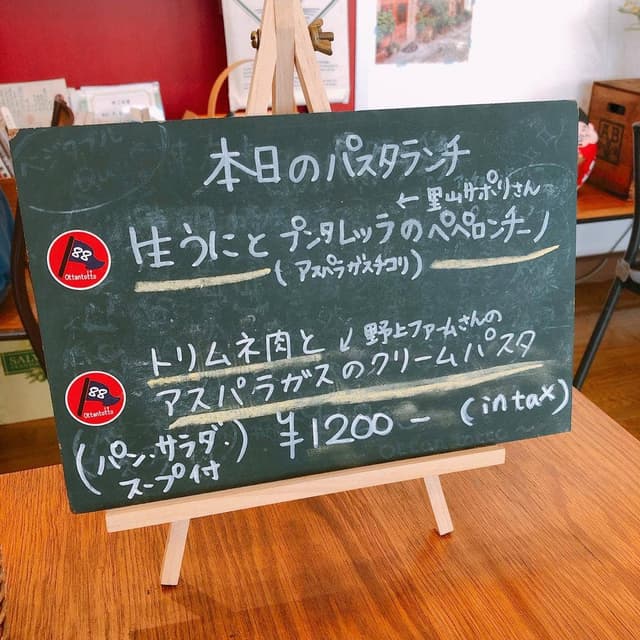 本日のパスタランチ
← 里山サポリさん
生うにと プンタレッラのペペロンチーノ
(アスパラガスチコリ)
88
Ottantotto
トリムネ肉と ↙ 野上ファームさんの
アスパラガスのクリームパスタ
88
Ottantotto
(パン・サラダ・スープ付) ¥1200- (in tax)